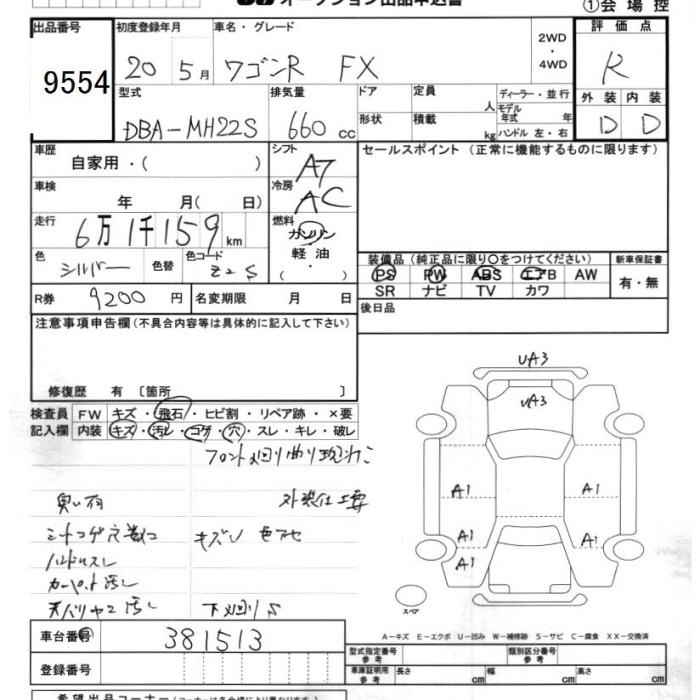 オークション出品申込書
①会場控
出品番号 初度登録年月 車名・グレード 評価点
9554 20 5月 ワゴンR FX 2WD ・ 4WD R
型式 排気量 ドア 定員 人 ディーラー・並行 外装 内装
DBA-MH22S 660 cc 形状 積載 kg モデル年式 年 ハンドル 左・右 D D
車歴 自家用・( ) シフト AT セールスポイント (正常に機能するものに限ります)
車検 年 月( 日) 冷房 AC
走行 6万1千159km 燃料 ガソリン
軽油
・( )
色 シルバー 色替 色コード Z2S
装備品 (純正品に限り○をつけてください) 新車保証書
PS PW ABS エアB AW 有・無
SR ナビ TV カワ
R券 9200円 名変期限 月 日 後日品
注意事項申告欄 (不具合内容等は具体的に記入して下さい)
修復歴 有 〔箇所 〕
検査員記入欄 FW キズ・飛石・ヒビ割・リペア跡・×要
内装 キズ・汚レ・コゲ・穴・スレ・キレ・破レ
外装仕上要
キズU 色アセ
ハンドルスレ
カーペット汚レ
下廻りS
UA3
UA3
A1 A1
A1 A1
A1
スペア
A-キズ E-エクボ U-凹み W-補修跡 S-サビ C-腐食 XX-交換済
車台番号 381513
登録番号
型式指定番号 参考 類別区分番号 参考
車庫証明用 参考 長さ cm 幅 cm 高さ cm
希望出品コーナー